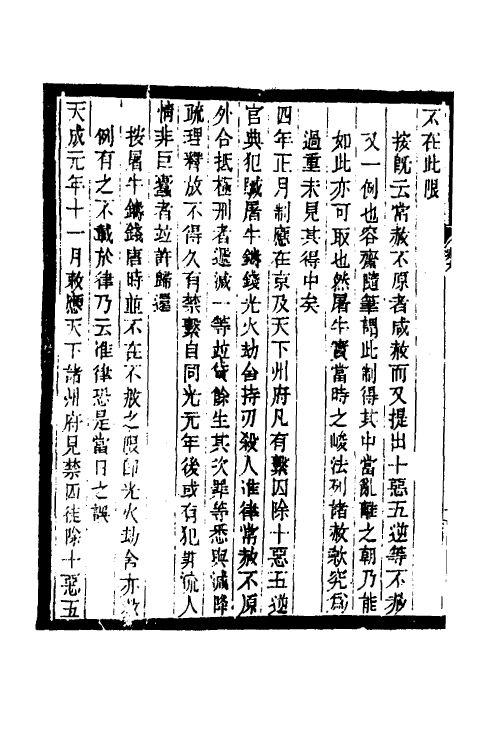 不在此限
按旣云常赦不原者咸赦而又提出十惡五逆等不赦
又一例也容齋隨筆謂此制得其中當亂離之朝乃能
如此亦可取也然屠牛實當時之峻法列諸赦款究爲
過重未見其得中矣
四年正月制應在京及天下州府凡有繫囚除十惡五逆
官典犯贓屠牛鑄錢光火劫舍持刃殺人准律常赦不原
外合抵極刑者遞減一等竝貸餘生其次罪等悉與減降
疏理釋放不得久有禁繫自同光元年後或有犯罪流人
情非巨蠹者竝許歸還
按屠牛鑄錢唐時並不在不赦之限卽光火劫舍亦赦
例有之不載於律乃云准律恐是當日之誤
天成元年十一月敕應天下諸州府見禁囚徒除十惡五